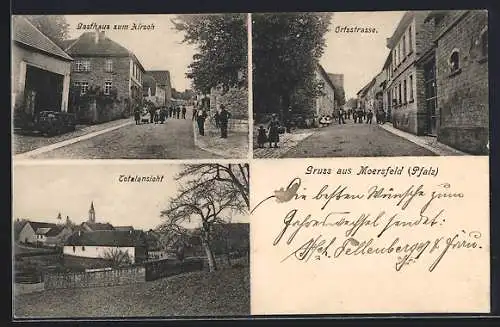 Gasthaus zum Hirsch
Ortsstrasse.
Totalansicht
Gruss aus Moersfeld (Pfalz)
Die besten Wünsche zum
Jahreswechsel sendet:
Fellenberger & Frau.